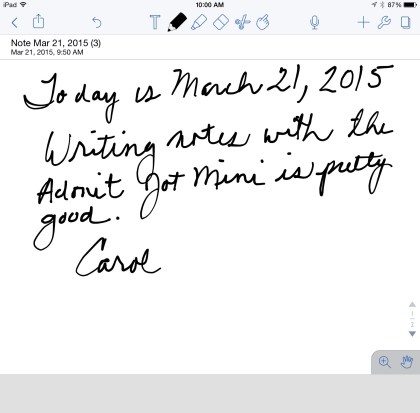 iPad
10:00 AM
87%
T
Note Mar 21, 2015 (3)
Mar 21, 2015, 9:50 AM
Today is March 21, 2015
Writing notes with the
Adonit Jot Mini is pretty
good.
Carol
1
2